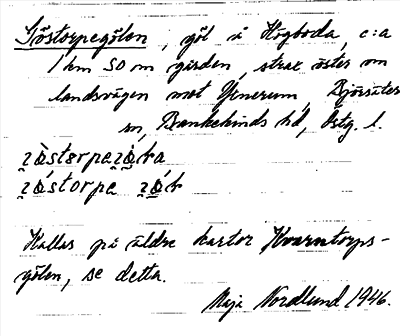 Göstorpegölen, göl å Högboda, c:a
1 km SO om gården, strax öster om
landsvägen mot Ynerum, Björsäter
sn, Bankekinds hd, Östg. l.
Kallas på äldre kartor Kvarntorps-
gölen, se detta.
Maja Nordlund 1946.